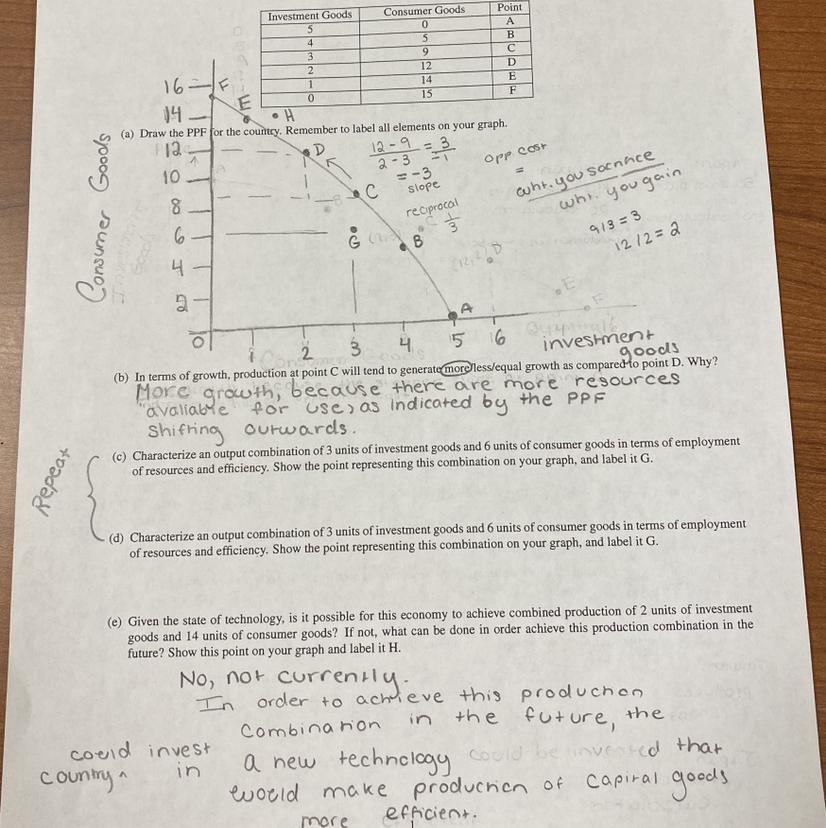 Investment Goods Consumer Goods Point
5 0 A
4 5 B
3 9 C
2 12 D
1 14 E
0 15 F
16 F
14 E H
(a) Draw the PPF for the country. Remember to label all elements on your graph.
12 D
12 - 9 = 3
2 - 3 -1
= -3
slope
opp cost
=
wht. you sacrifice
wht. you gain
10 C
reciprocal
1
3
9/3 = 3
12/2 = 2
8
6 G B
4
2 A
0 1 2 3 4 5 6 investment
goods
Consumer Goods
(b) In terms of growth, production at point C will tend to generate more/less/equal growth as compared to point D. Why?
More growth, because there are more resources
avaliable for use, as indicated by the PPF
shifting outwards.
Repeat
(c) Characterize an output combination of 3 units of investment goods and 6 units of consumer goods in terms of employment
of resources and efficiency. Show the point representing this combination on your graph, and label it G.
(d) Characterize an output combination of 3 units of investment goods and 6 units of consumer goods in terms of employment
of resources and efficiency. Show the point representing this combination on your graph, and label it G.
(e) Given the state of technology, is it possible for this economy to achieve combined production of 2 units of investment
goods and 14 units of consumer goods? If not, what can be done in order achieve this production combination in the
future? Show this point on your graph and label it H.
No, not currently.
In order to achieve this production
combination in the future, the
country ^ could invest in a new technology that
would make production of capital goods
more efficient.